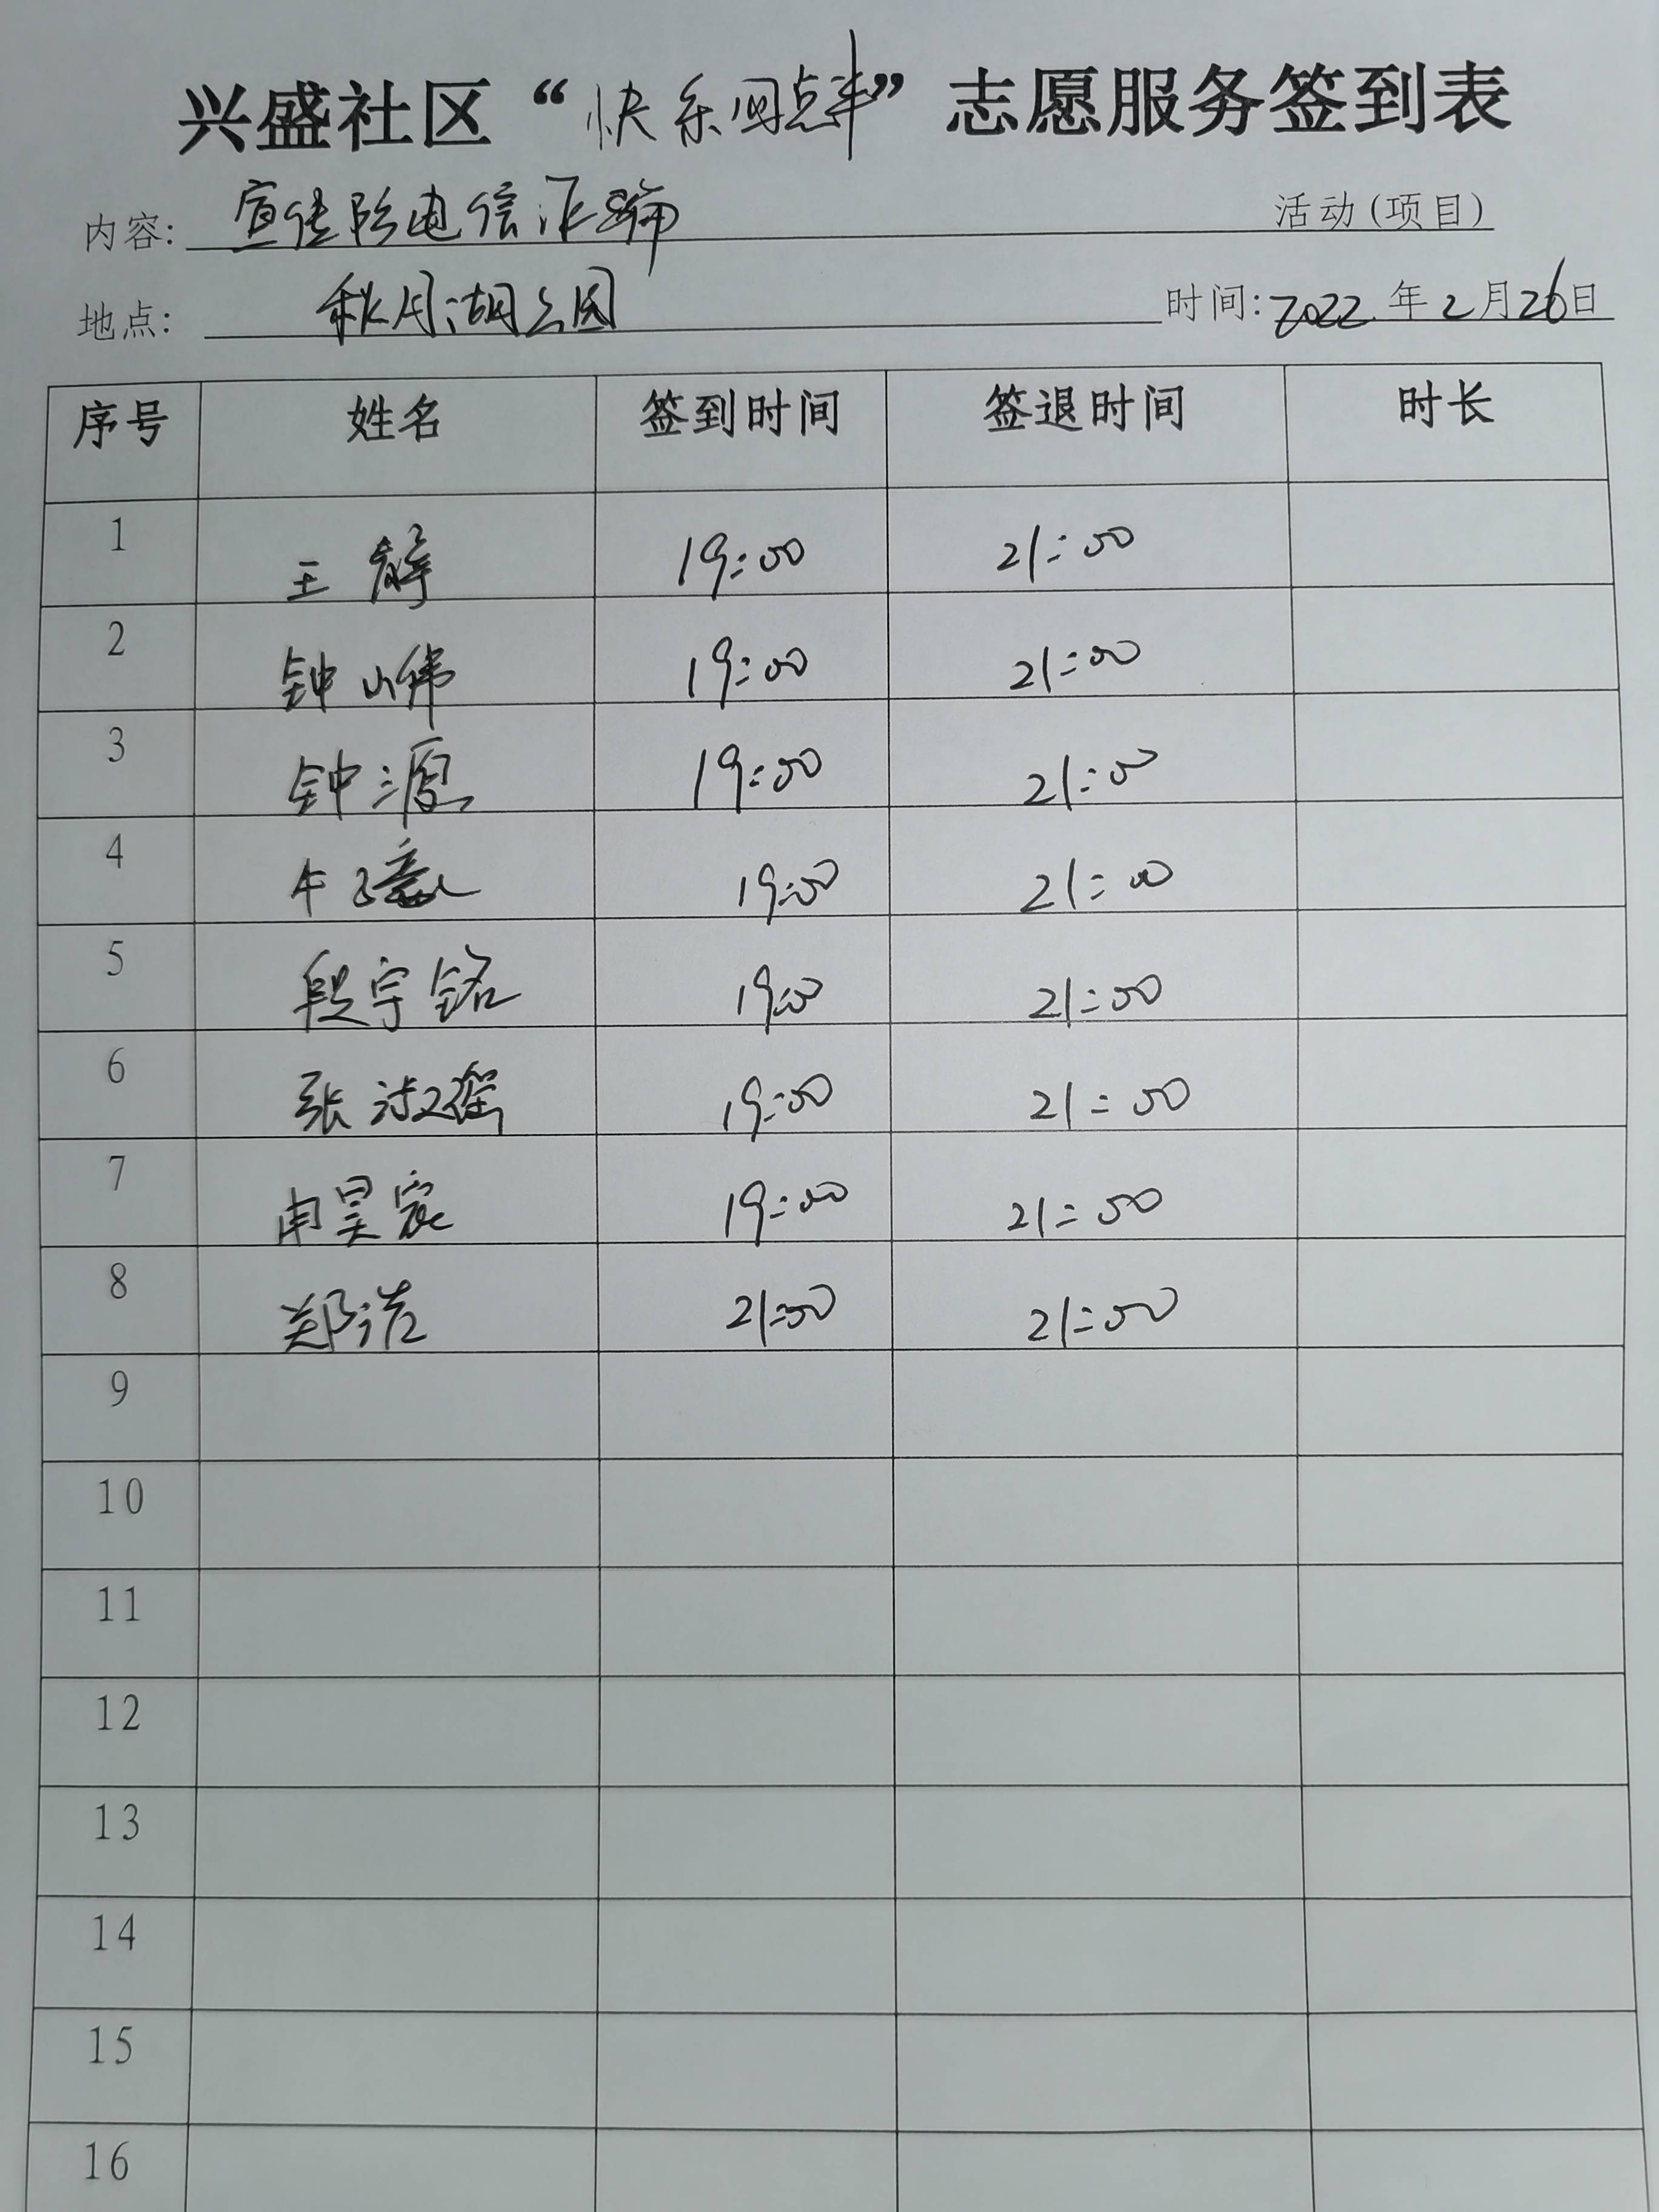 兴盛社区“快乐周点半”志愿服务签到表
内容: 宣传防电信诈骗 活动(项目)
地点: 秋月湖公园 时间: 2022 年 2 月 26 日
序号 姓名 签到时间 签退时间 时长
1 王静 19:00 21:00
2 钟小伟 19:00 21:00
3 钟源 19:00 21:00
4 牛 19:00 21:00
5 段宇铭 19:00 21:00
6 张淑瑶 19:00 21:00
7 昊宸 19:00 21:00
8 郑浩 21:00 21:00
9
10
11
12
13
14
15
16